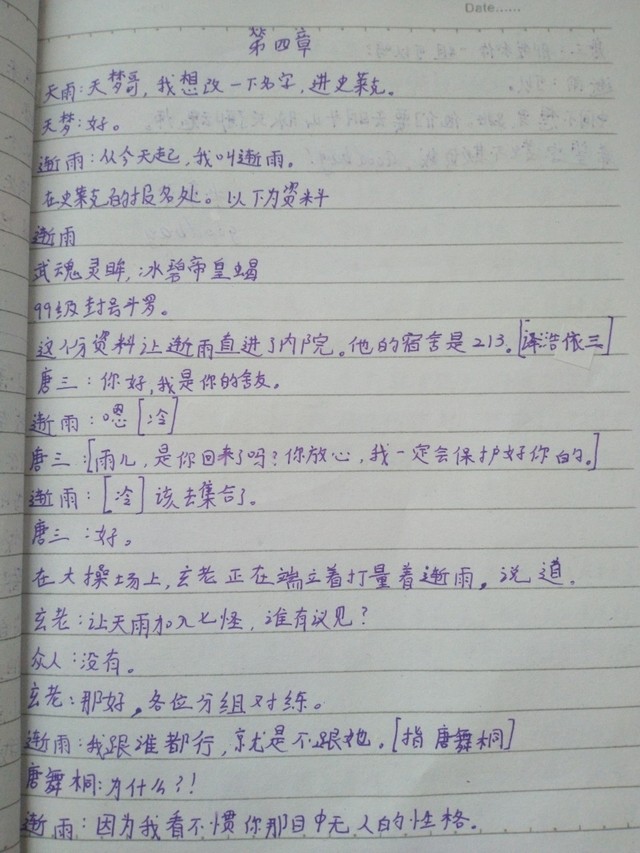 Date......
第四章
天雨:天梦哥,我想改一下名字,进史莱克。
天梦:好。
逝雨:从今天起,我叫逝雨。
在史莱克的报名处。以下为资料
逝雨
武魂灵眸,:冰碧帝皇蝎
99级封号斗罗。
这个份资料让逝雨直进了内院。他的宿舍是213。[泽浩依三]
唐三:你好,我是你的舍友。
逝雨:嗯[冷]
唐三:[雨儿,是你回来了吗?你放心,我一定会保护好你的。]
逝雨:[冷]该去集合了。
唐三:好。
在大操场上,玄老正在端立着打量着逝雨,说道.
玄老:让天雨加入七怪,谁有议见?
众人:没有。
玄老:那好,各位分组对练。
逝雨:我跟谁都行,就是不跟她。[指唐舞桐]
唐舞桐:为什么?!
逝雨:因为我看不惯你那目中无人的性格。